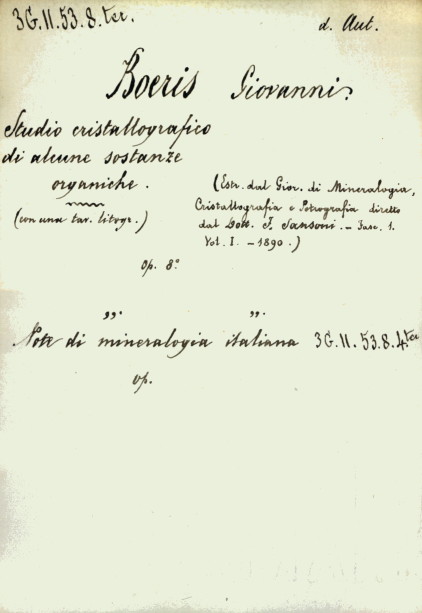 3G.II.53.8.ter.
d. Aut.
Boeris Giovanni.
Studio cristallografico
di alcune sostanze
organiche.
(con una tav. litogr.)
(Estr. dal Gior. di Mineralogia,
Cristallografia e Petrografia diretto
dal Dott. F. Sansoni. - Fasc. 1.
Vol. I. - 1890.)
op. 8º
,,. ,,.
Note di mineralogia italiana 3G.II.53.8.4ter
op.